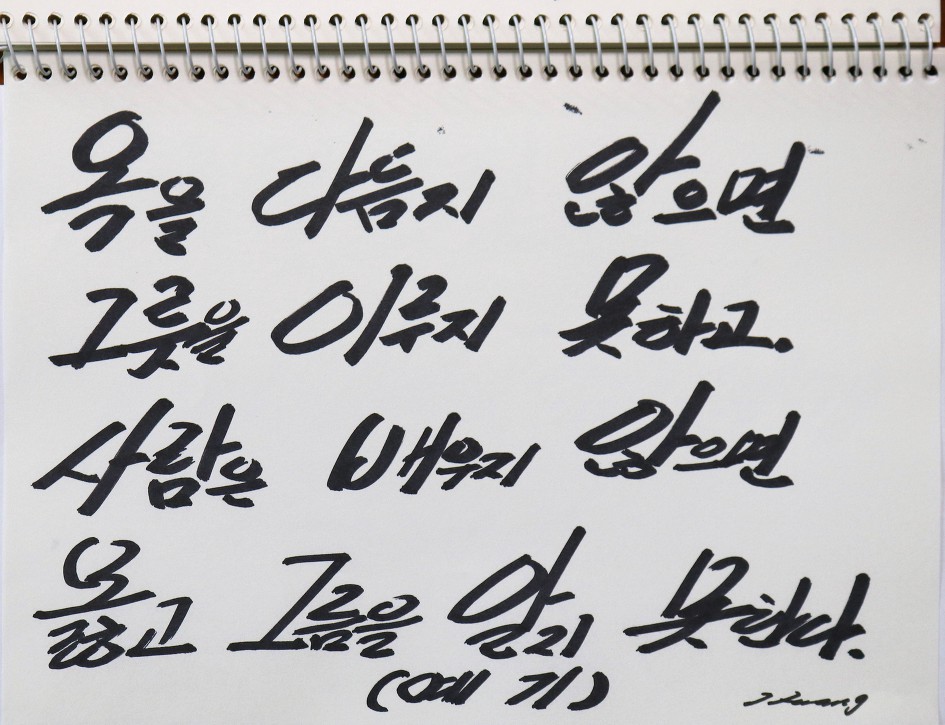 옥을 다듬지 않으면
그릇을 이루지 못하고.
사람은 배우지 않으면
옳고 그름을 알지 못한다.
(예 기)